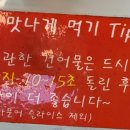 맛나게 먹기 Tip
관한 건어물은 드시
10-15초 돌린 후
더 좋습니다~
슬라이스 제외)